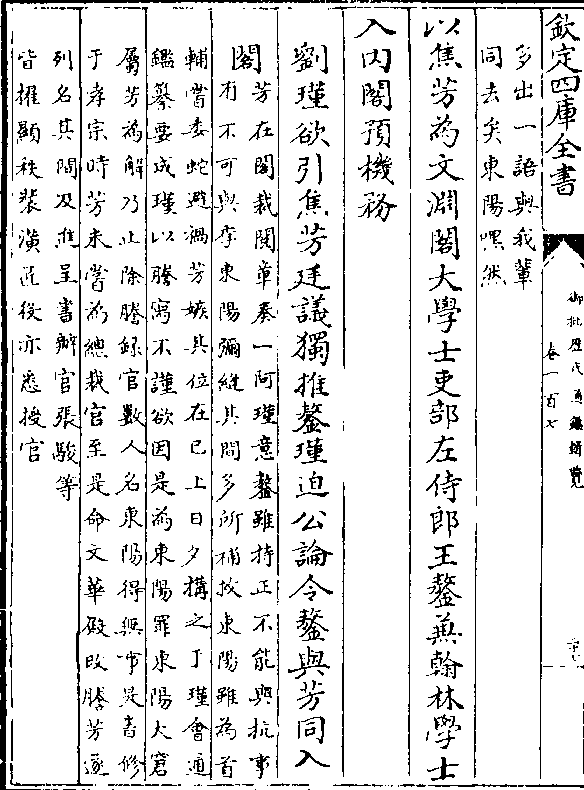 欽定四庫全書
御批歷代通鑑輯覽
卷一百七
多出一語與我輩
同去矣東陽嘿然
以焦芳為文淵閣大學士吏部左侍郎王鏊兼翰林學士
入内閣預機務
劉瑾欲引焦芳廷議獨推鏊瑾迫公論令鏊與芳同入
閣
芳在閣裁閱章奏一阿瑾意鏊雖持正不能與抗事
有不可與李東陽彌縫其間多所補救東陽雖為首
輔嘗委蛇避禍芳嫉其位在己上日夕搆之于瑾會通
鑑纂要成瑾以謄寫不謹欲因是為東陽罪東陽大窘
屬芳為解乃止除謄録官數人名東陽得無事是書修
于孝宗時芳未嘗為總裁官至是命文華殿改謄芳遂
列名其間及進呈書辦官張駿等
皆擢顯秩裝潢匠役亦悉授官